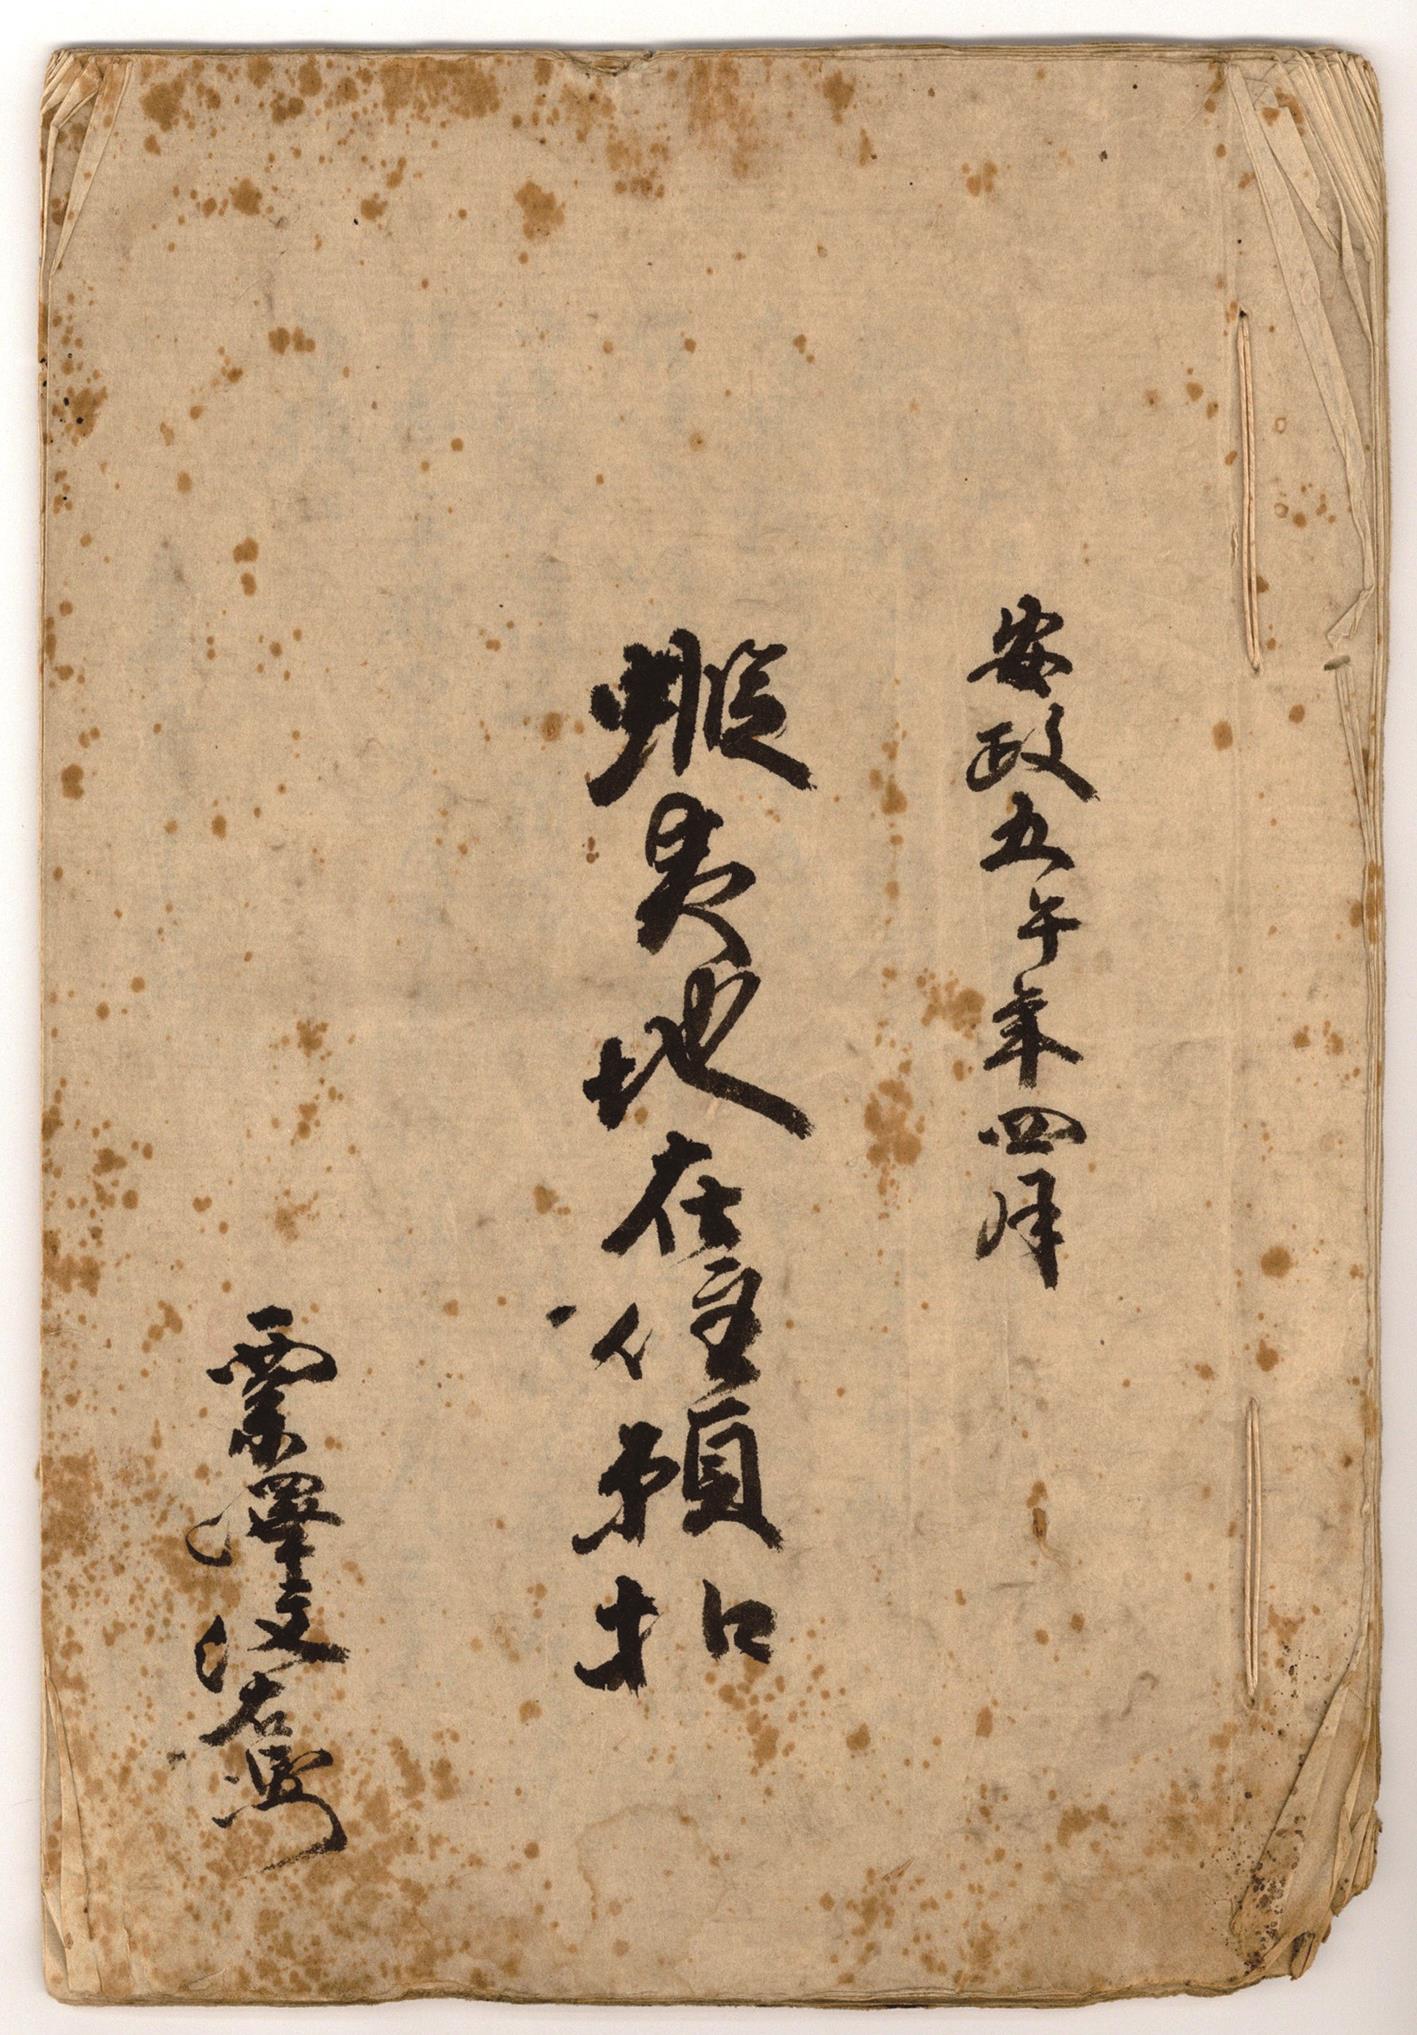 安政五午年四月
蝦夷地在住願扣
粟澤汶右衛門